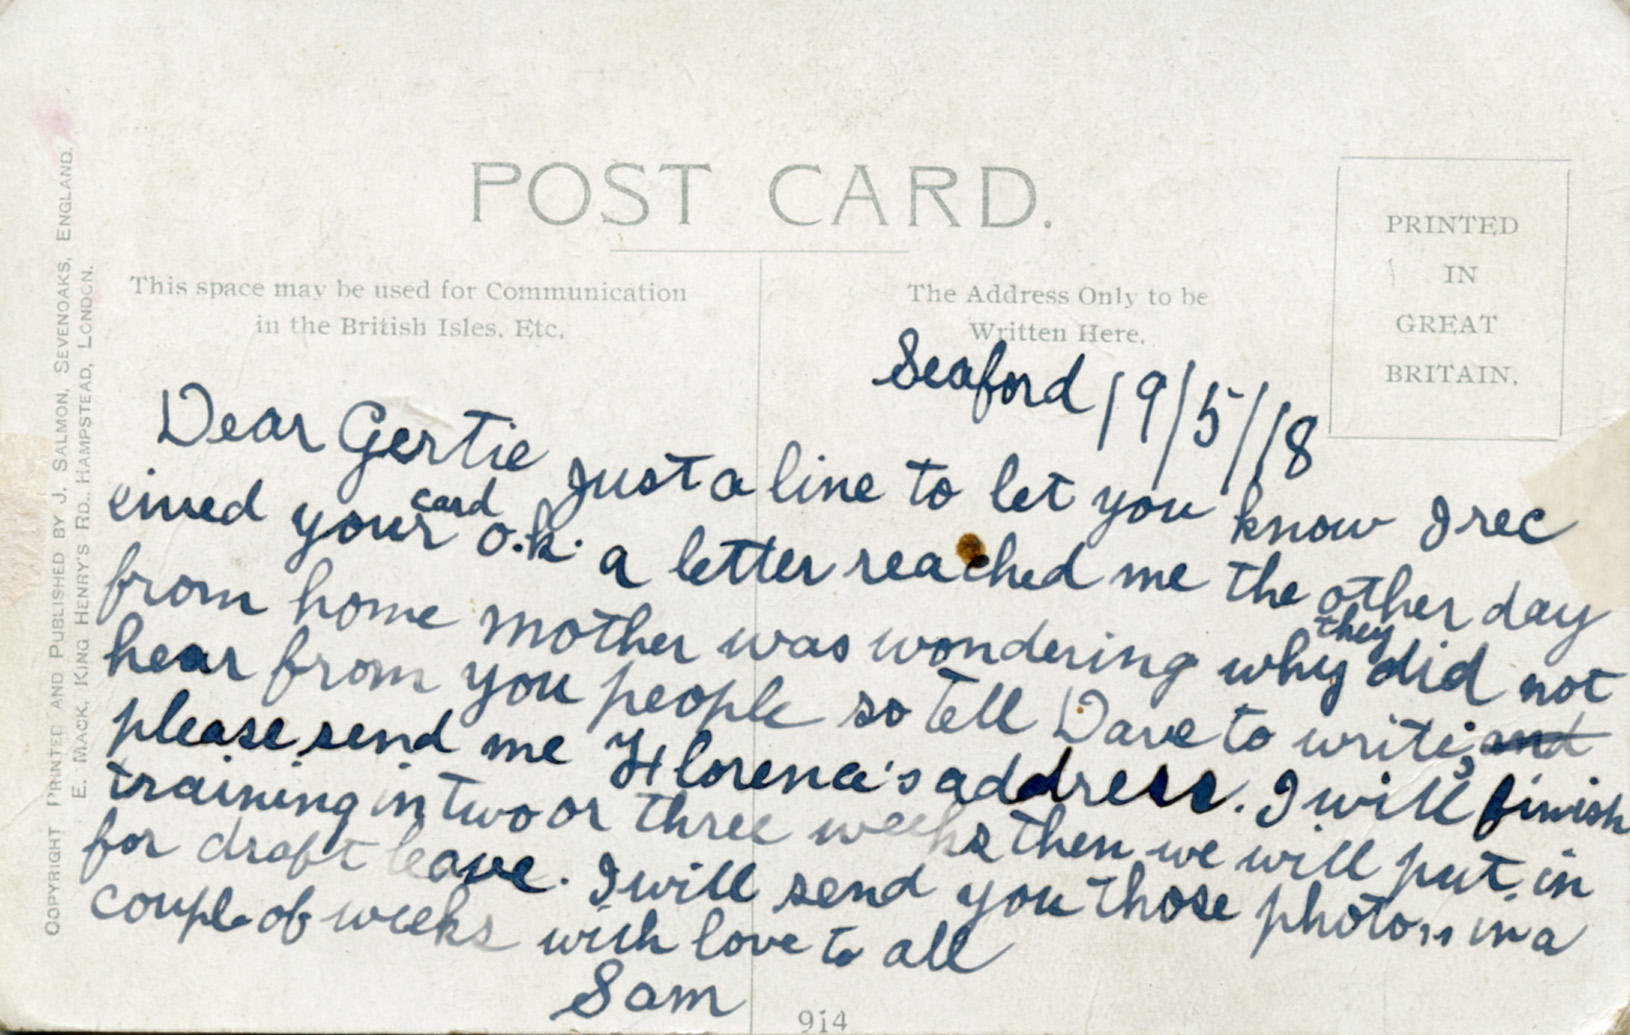 POST CARD.
This space may be used for Communication
in the British Isles, Etc.
The Address Only to be
Written Here.
PRINTED
IN
GREAT
BRITAIN.
COPYRIGHT PRINTED AND PUBLISHED BY J. SALMON, SEVENOAKS, ENGLAND.
E. MACK, KING HENRY'S RD., HAMPSTEAD, LONDON.
Seaford 19/5/18
Dear Gertie just a line to let you know I rec
eived your card o.k. a letter reached me the other day
from home mother was wondering why they did not
hear from you people so tell Dave to write, and
please send me Florena's address. I will finish
training in two or three weeks then we will put in
for draft leave. I will send you those photos in a
couple of weeks with love to all
Sam
914